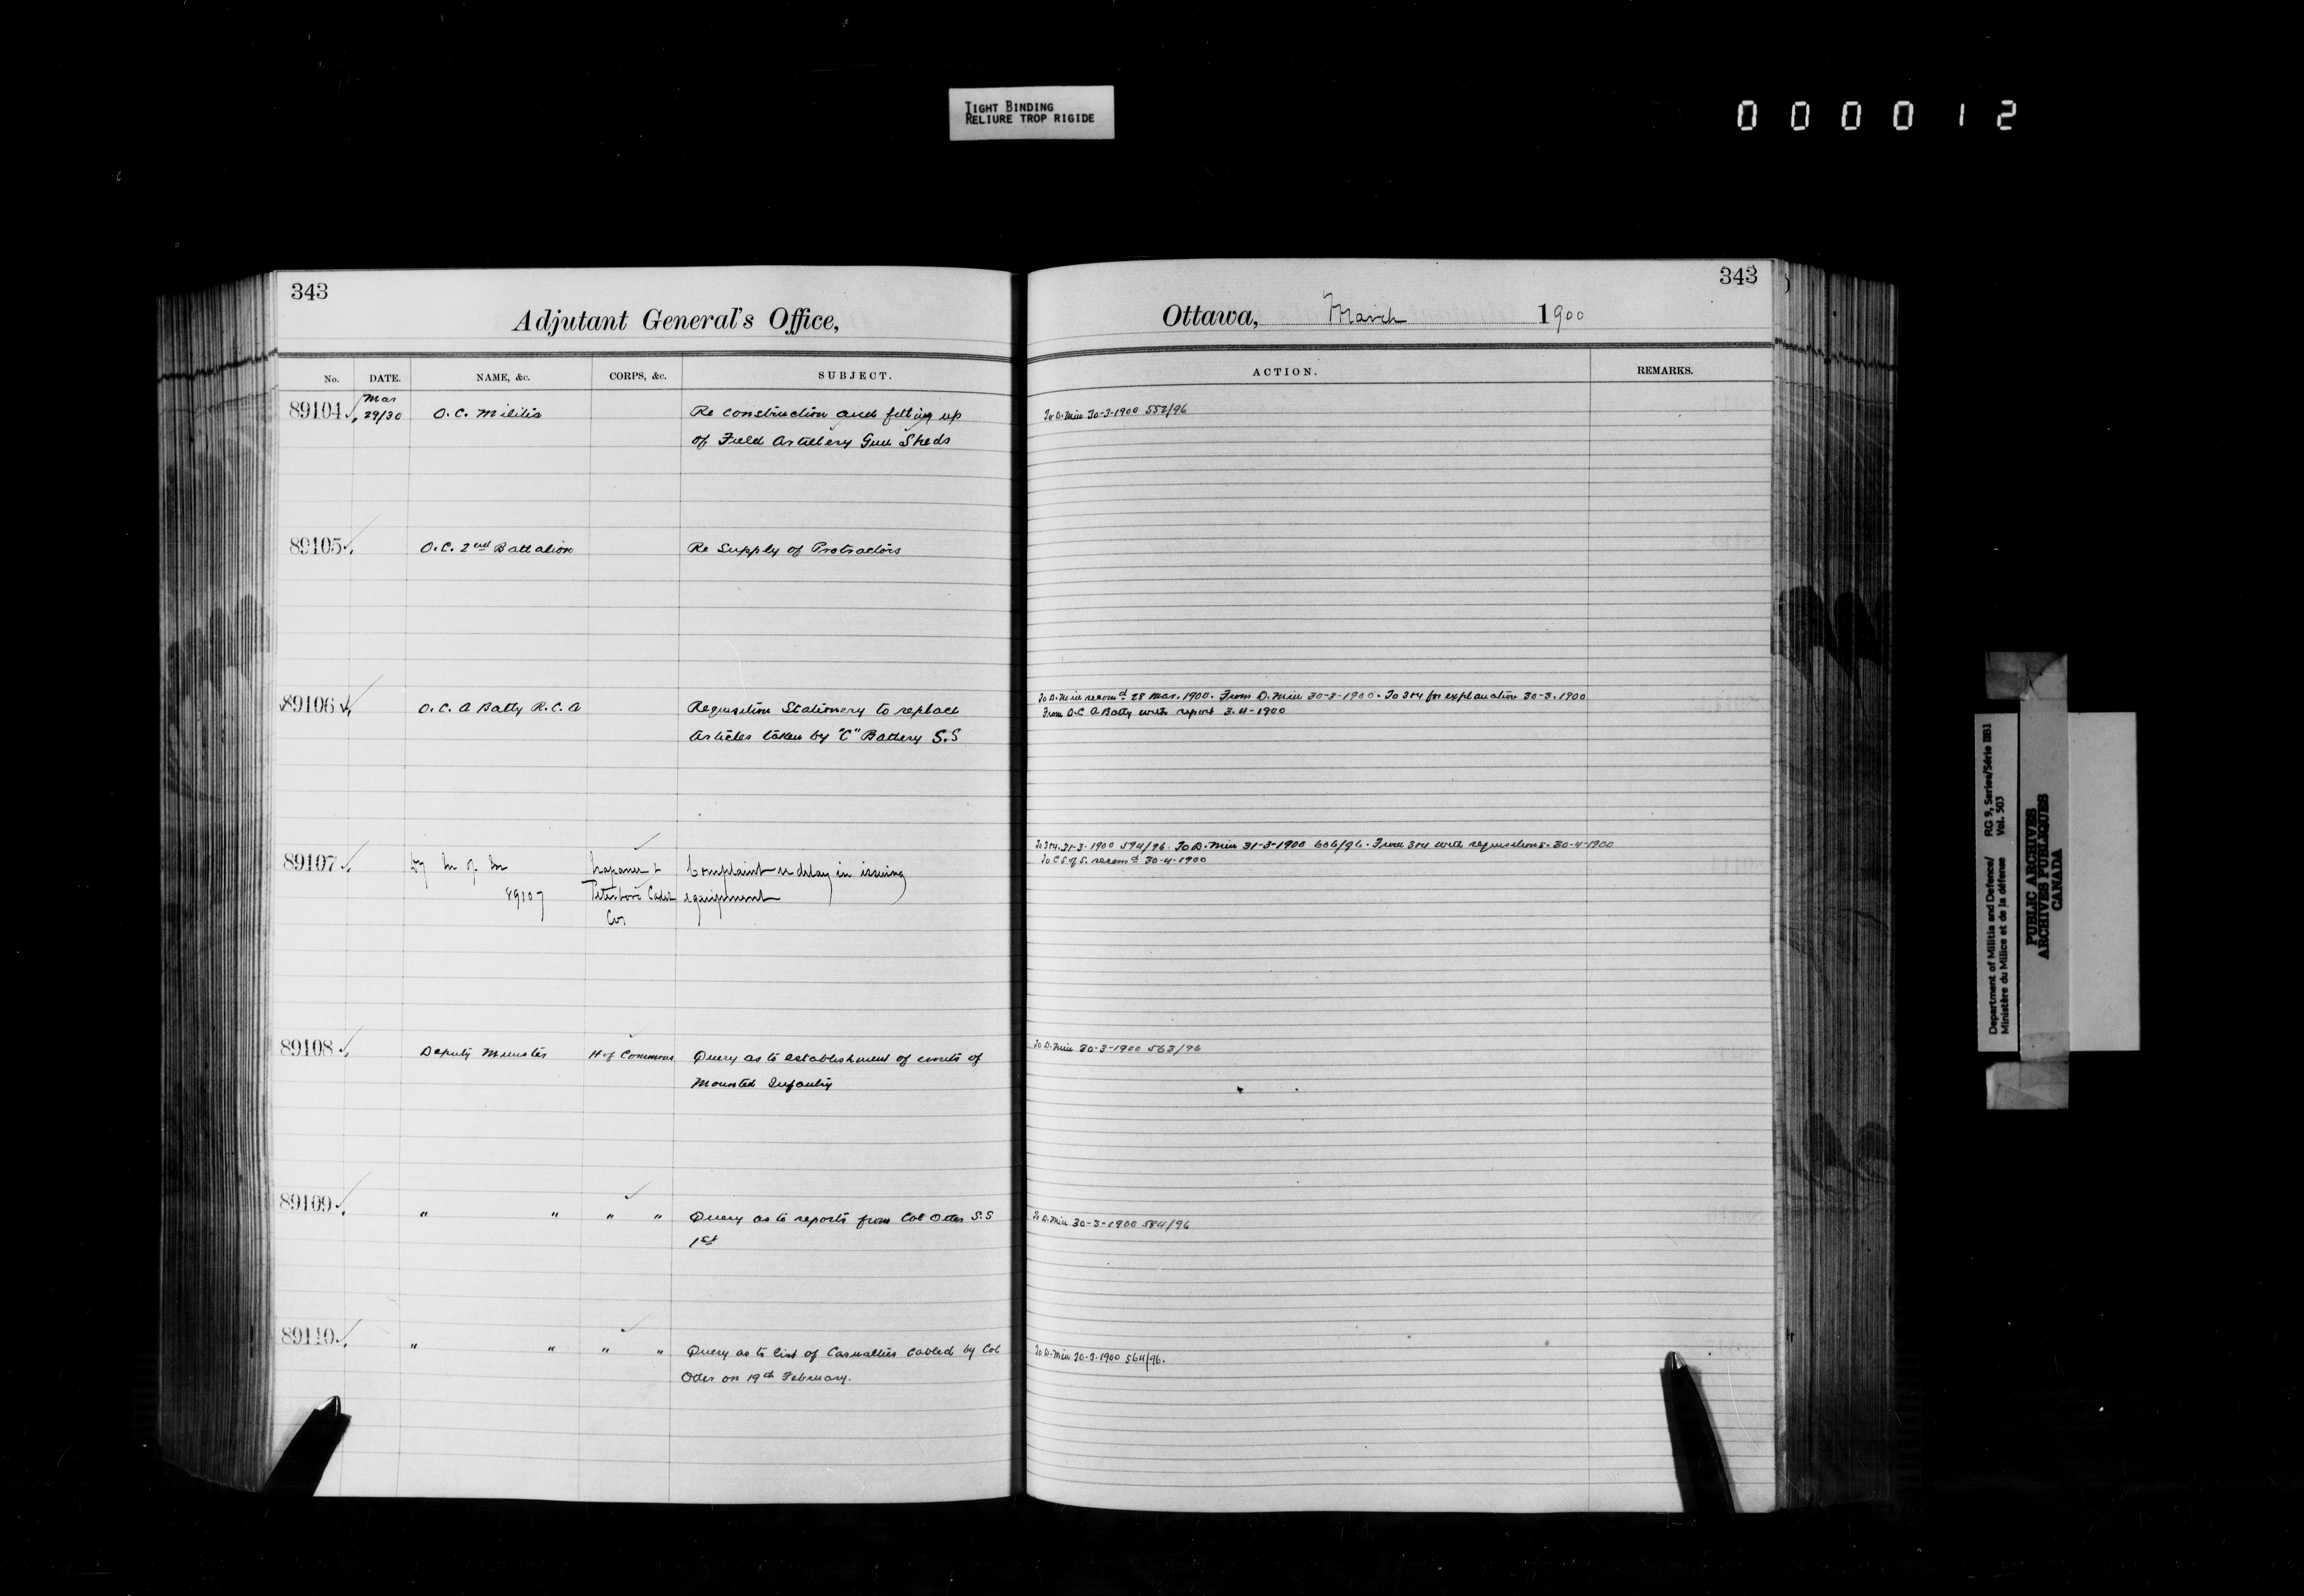 TIGHT BINDING
RELIURE TROP RIGIDE
000012
343
Adjutant General's Office,
No. DATE. NAME, &c. CORPS, &c. SUBJECT.
89104 Mar 29/30 O.C. Militia Re construction and fitting up
of Field Artillery Gun Sheds
89105 O.C. 2nd Battalion Re Supply of Protractors
89106 O.C. A Batty R.C.A Requisition Stationery to replace
Articles taken by "C" Battery S.S
89107 Complaint re delay in issuing
89107 Peterboro Cadet equipment
Cor
89108 Deputy Minister H of Commons Query as to establishment of units of
Mounted Infantry
89109 " " " " Query as to reports from Col Otter S.S
1st
89110 " " " " Query as to list of Casualties Cabled by Col
Otter on 19th February.
343
Ottawa, March 1900
ACTION. REMARKS.
To D. Min 30-3-1900 552/96
To D. Min recomd 28 Mar. 1900. From D. Min 30-3-1900. To 3&4 for explanation 30-3-1900
From O.C A Batty with report 3-4-1900
To 3&4. 31-3-1900 594/96. To D. Min 31-3-1900 606/96. From 3&4 with requisitions. 30-4-1900
To C S of S. recomd 30-4-1900
To D. Min 30-3-1900 563/96
To D. Min 30-3-1900 584/96
To D. Min 30-3-1900 564/96.
Department of Militia and Defence/ RG 9, Series/Série IIB1
Ministère du Milice et de la défense Vol. 503
PUBLIC ARCHIVES
ARCHIVES PUBLIQUES
CANADA